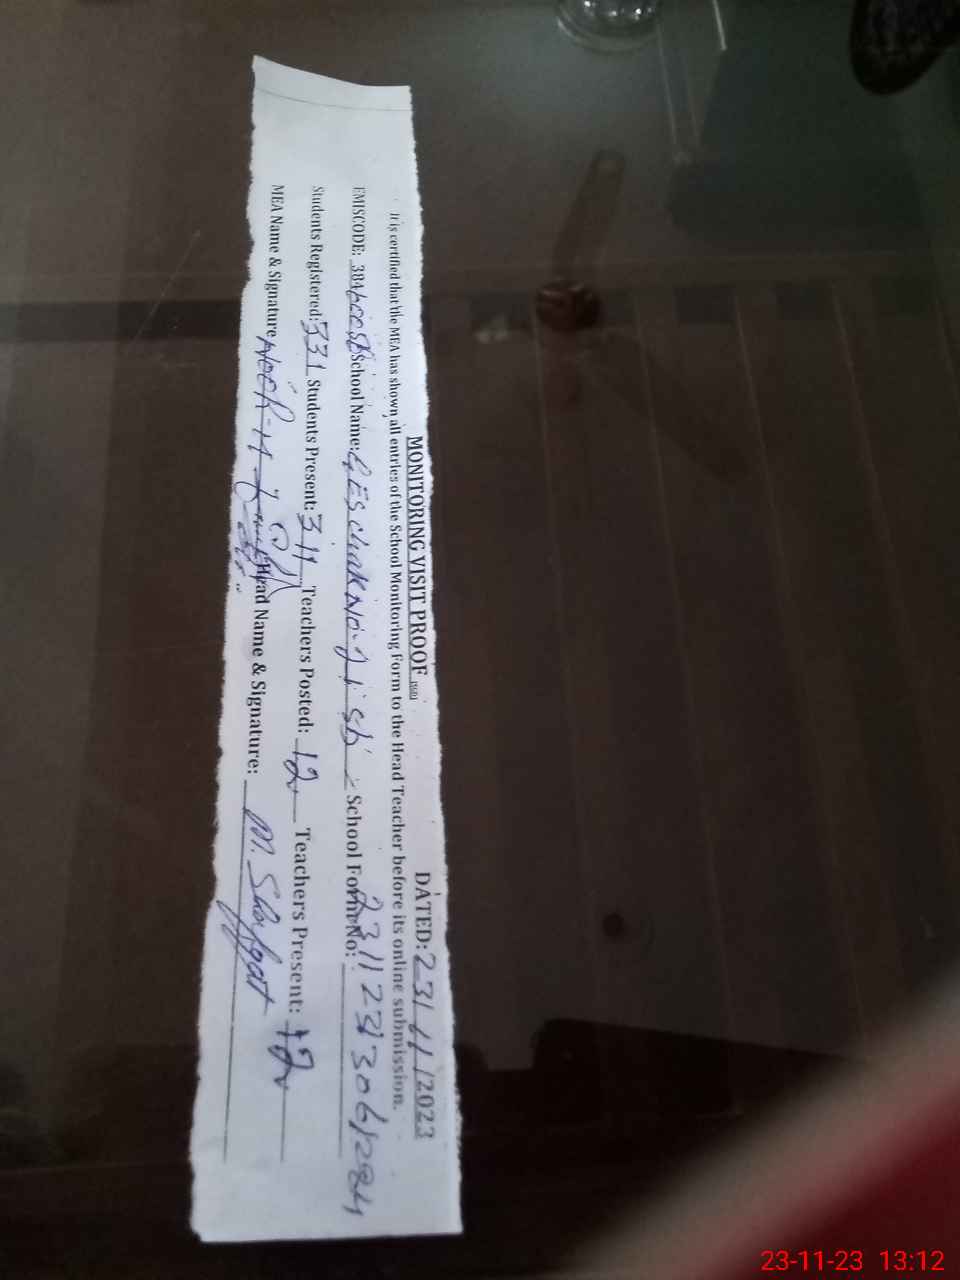 MONITORING VISIT PROOF DATED: 23/11/2023
It is certified that the MEA has shown all entries of the School Monitoring Form to the Head Teacher before its online submission.
EMISCODE: 384 School Name: GES chak No. 71 sb School Form No:
Students Registered: 331 Students Present: 311 Teachers Posted: 12 Teachers Present: 12
MEA Name & Signature Head Name & Signature: M. Shafqat
23-11-23 13:12